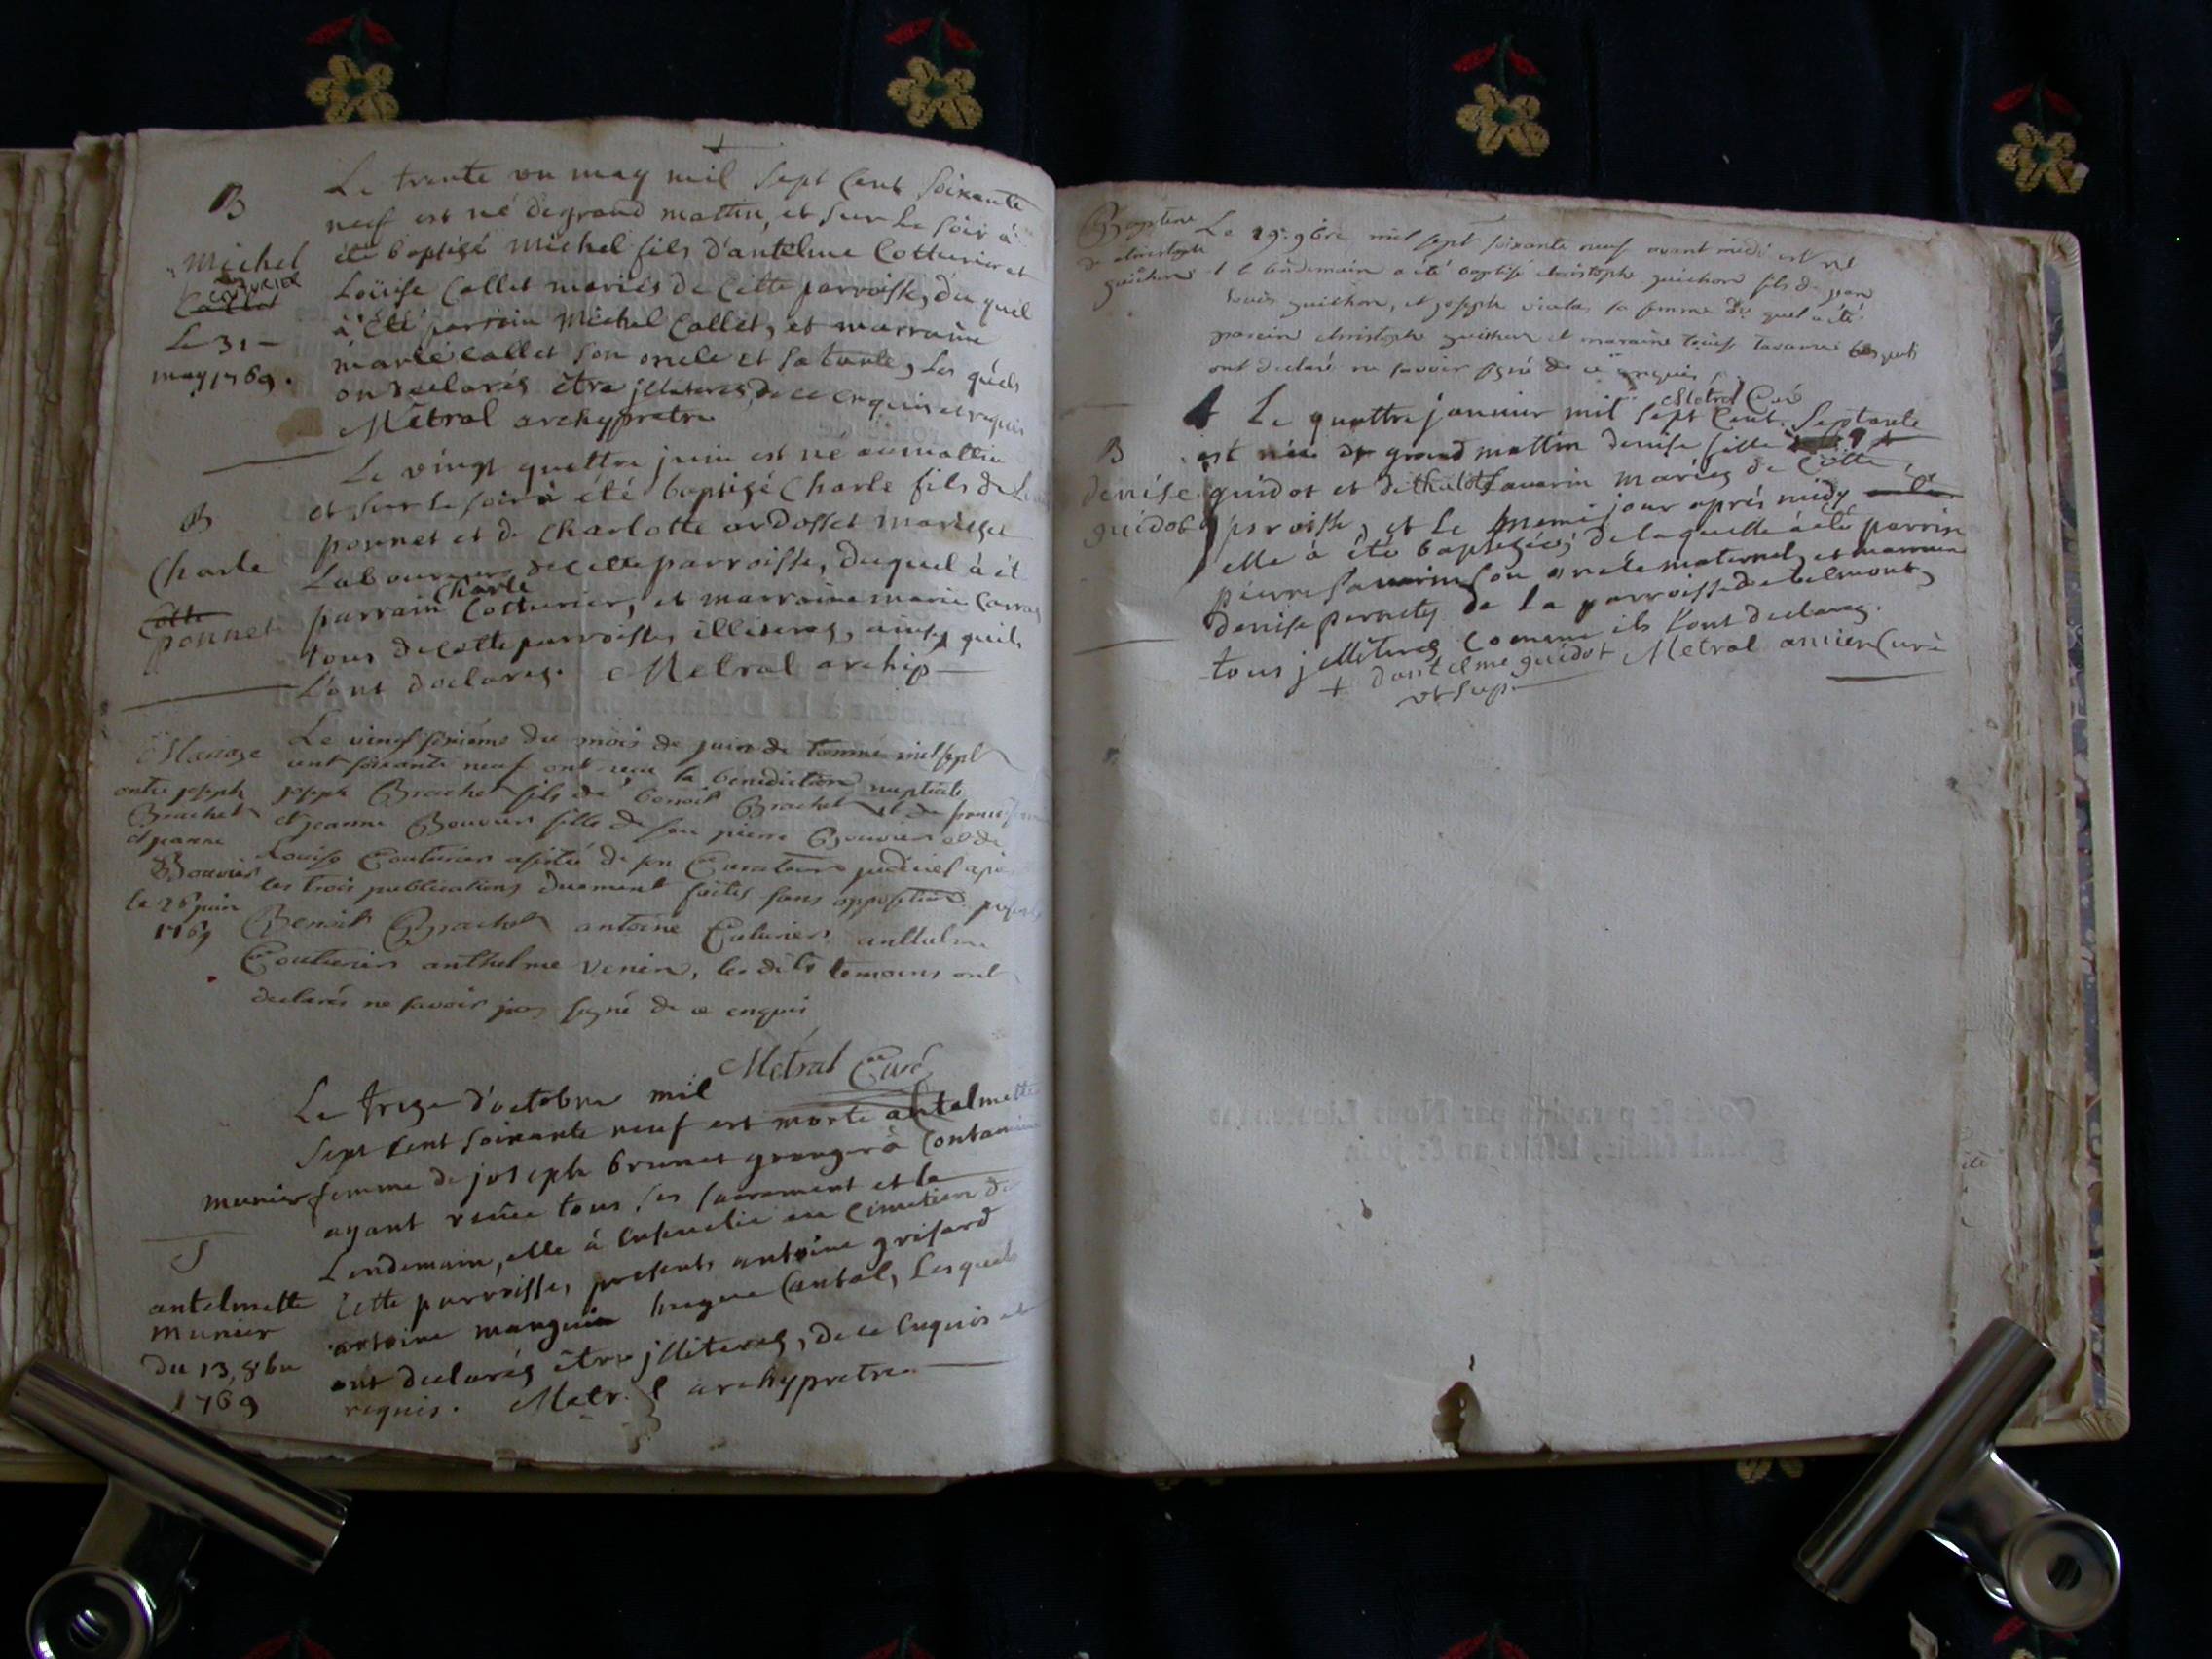 B
Michel
COTURIER
Callet
Le 31
may 1769.
Le trente un may mil sept cent soixante
neuf est né de grand mattin, et sur le soir à
été baptisé Michel fils d'antelme Cotturier et
Loüise Callet mariés de cette parroisse, du quel
à été parrain Michel Callet, et marraine
marie Callet son oncle et sa tante, les quels
on declarés être jlliteres, de ce enquis et requis
Métral archypretre
B
Charle
Cottu
ponnet
Le vingt quattre juin est né au mattin
et sur le soir à été baptisé Charle fils de
ponnet et de Charlotte ardosset mariés
Laboureurs de cette parroisse, duquel à ét
Charle
parrain Cotturier, et marraine marie
tous de cette parroisse, illiteres, ainsy quils
l'ont declarés. Metral archip
Mariage
entre joseph
Brachet
et jeanne
Bouvier
le 26 juin
1769
Le vingt sixième du mois de juin de l'année mil sept
cent soixante neuf ont reçu la benediction nuptiale
joseph Brachet fils de benoit Brachet et de
et jeanne Bouvier fille de feu pierre Bouvier et de
Louise Couturier asistée de son Curateur judiciel
les trois publications duement faites sans opposition
Benoit Brachet antoine Cuturier anthelme
Couturier anthelme venin, les dits temoins ont
declarés ne savoir pas signé de ce enquis
Métral Curé
S
antelmette
munier
du 13, 8bre
1769
Le treze d'octobre mil
sept cent soixante neuf est morte antelmette
munier femme de joseph brunet granger à
ayant reçue tous ses sacrement et le
Lendemain, elle à ensevelie au Cimetiere de
Cette parroisse, presents antoine grisard
antoine manguin Cantal, Lesquels
ont declarés être jlliteres, de ce enquis et
requis. Metral archypretre
Baptême
de christophe
guichon
Le 29 9bre mil sept soixante neuf avant midi est né
et le lendemain a été baptisé christophe guichon fils de
Louis guichon, et joseph sa femme du quel a été
parain christophe guichon et maraine
ont declaré ne savoir signé de ce enquis
Metral Curé
B
denise
guidot
Le quattre janvier mil sept cent septante
est née de grand mattin denise fille +
guidot et de savarin mariés de Cette
parroisse, et le meme jour aprés midy
elle à été baptisée, de laquelle à été parrin
pierre savarin son oncle maternel, et marraine
denise de la parroisse de belmont,
tous jlliteres comme ils l'ont declarés.
+ d'antelme guidot Metral ancien Curé
ut sup.